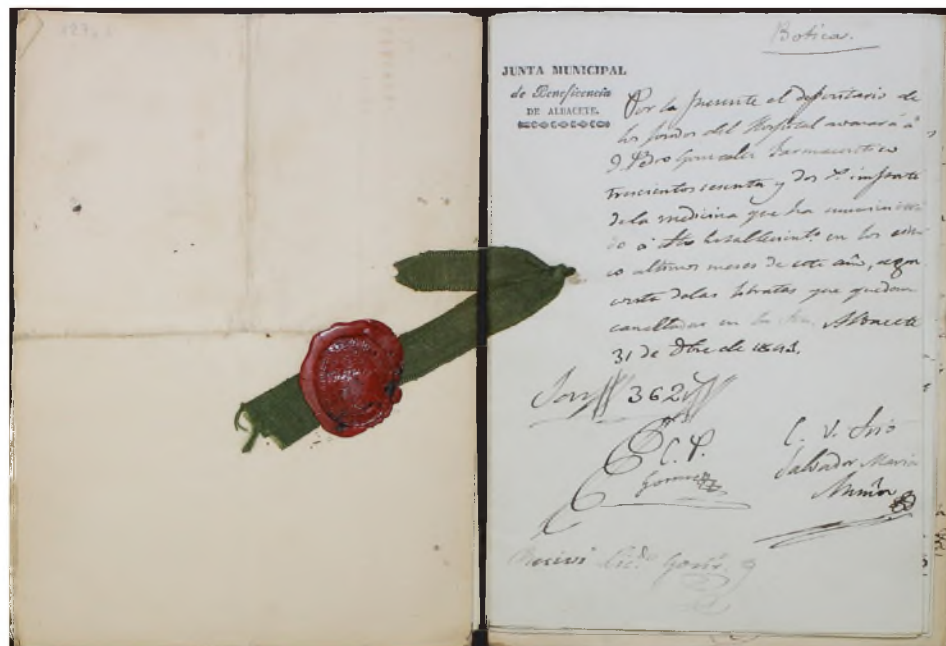 Boticas.
JUNTA MUNICIPAL
de Beneficencia
DE ALBACETE.
Por la presente el depositario de
los fondos del Hospital avonará á
D. Pedro Gonzalez Farmaceutico
trescientos sesenta y dos r.s importe
de la medicina que ha suministra
do á dho establecimto. en los
co ultimos meses de este año, segun
consta de las libretas que quedan
canceladas en Albacete
31 de Dbre de
Son 362
C. P.
Gomez
C. V. Srio
Salvador Maria
Recivi Licdo Gonz.